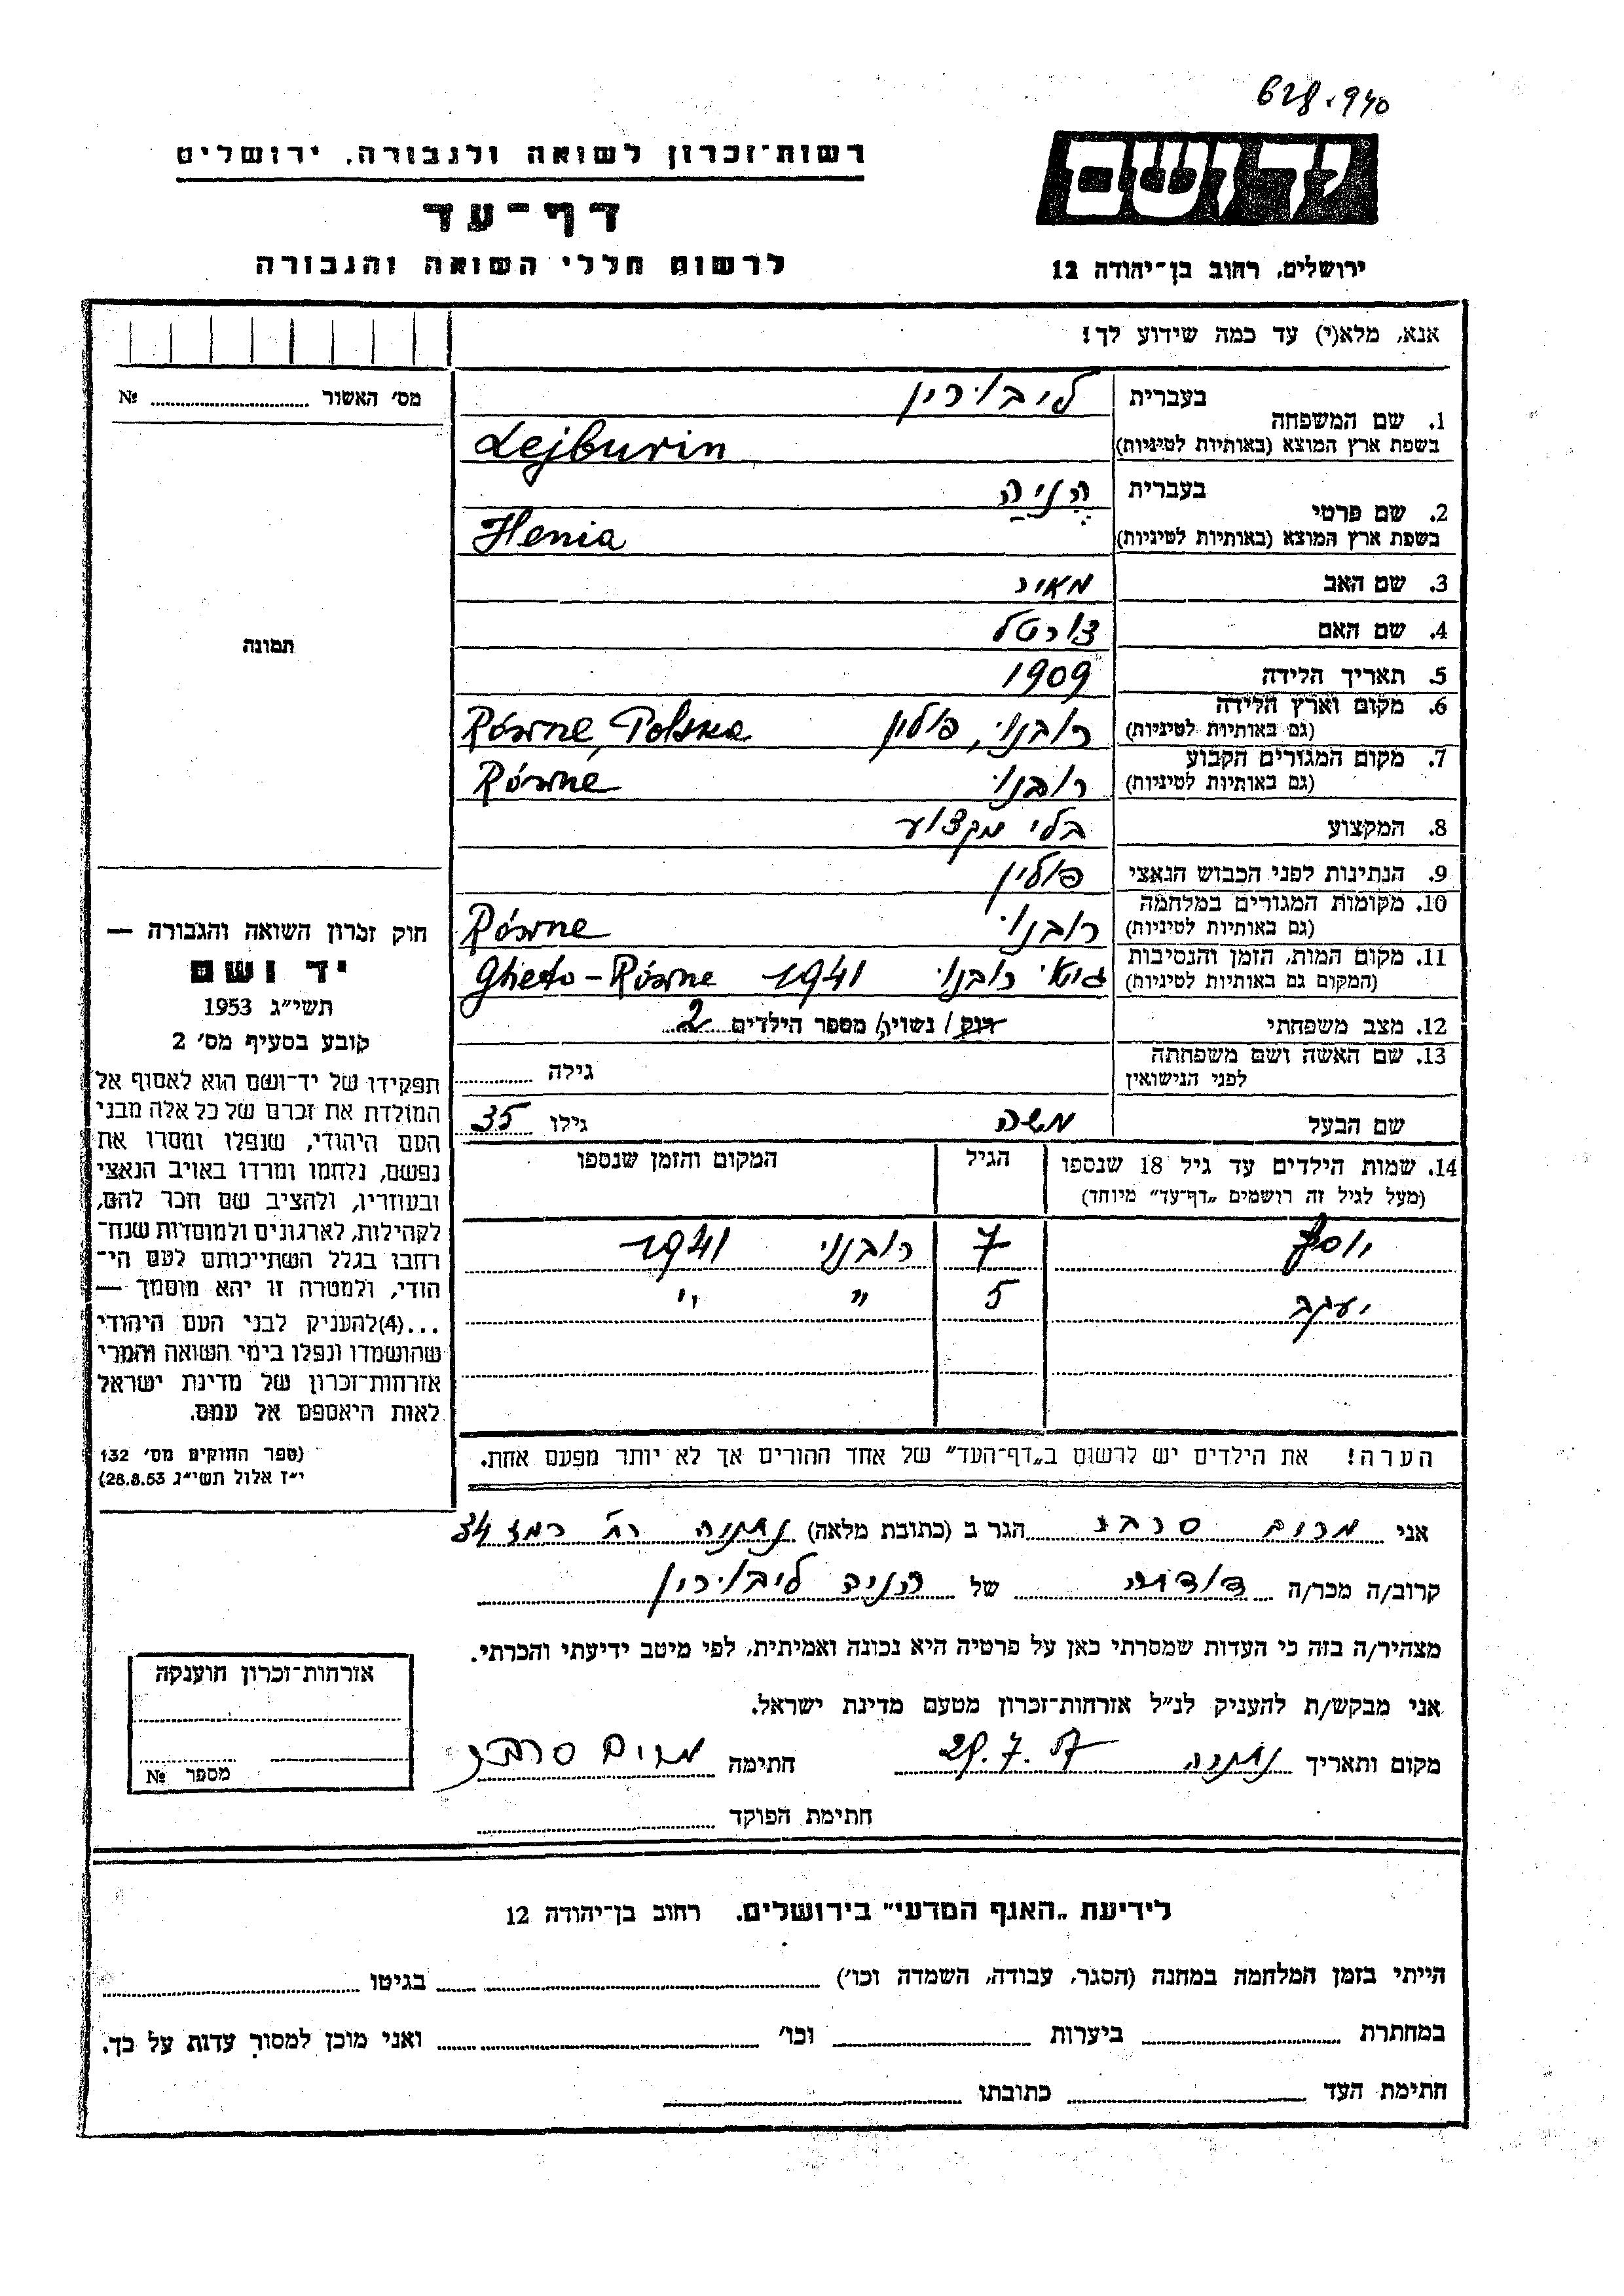 628.940
יד ושם
רשות-זכרון לשואה ולגבורה, ירושלים
דף-עד
לרשום חללי השואה והגבורה
ירושלים, רחוב בן-יהודה 12
אנא, מלא(י) עד כמה שידוע לך!
מס' האשור № 
1. שם המשפחה
בעברית ליבוירין
בשפת ארץ המוצא (באותיות לטיניות) Lejburin
2. שם פרטי
בעברית הניה
בשפת ארץ המוצא (באותיות לטיניות) Henia
3. שם האב מאיר
4. שם האם
5. תאריך הלידה 1909
6. מקום וארץ הלידה
(גם באותיות לטיניות) רובנו, פולין Równe, Polska
7. מקום המגורים הקבוע
(גם באותיות לטיניות) רובנו Równe
8. המקצוע בלי מקצוע
9. הנתינות לפני הכבוש הנאצי פולין
10. מקומות המגורים במלחמה
(גם באותיות לטיניות) רובנו Równe
11. מקום המות, הזמן והנסיבות
(המקום גם באותיות לטיניות) גיטו רובנו 1941 Gheto-Równe
12. מצב משפחתי רוק / נשוי/ מספר הילדים 2
13. שם האשה ושם משפחתה
לפני הנישואין גילה
שם הבעל משה גילו 35
14. שמות הילדים עד גיל 18 שנספו
(מעל לגיל זה רושמים „דף-עד" מיוחד)
הגיל
המקום והזמן שנספו
יוסף 7 רובנו 1941
יעקב 5 " "
הערה! את הילדים יש לרשום ב„דף-העד" של אחד ההורים אך לא יותר מפעם אחת.
תמונה
חוק זכרון השואה והגבורה —
יד ושם
תשי"ג 1953
קובע בסעיף מס' 2
תפקידו של יד-ושם הוא לאסוף אל
המולדת את זכרם של כל אלה מבני
העם היהודי, שנפלו ומסרו את
נפשם, נלחמו ומרדו באויב הנאצי
ובעוזריו, ולהציב שם וזכר להם,
לקהילות, לארגונים ולמוסדות שנח-
רבו בגלל השתייכותם לעם הי-
הודי, ולמטרה זו יהא מוסמך —
...(4)להעניק לבני העם היהודי
שהושמדו ונפלו בימי השואה והמרי
אזרחות-זכרון של מדינת ישראל
לאות היאספם אל עמם.
(ספר החוקים מס' 132
י"ז אלול תשי"ג 28.8.53)
אני מרום הגר ב (כתובת מלאה) נתניה רח' רמז 34
קרוב/ה מכר/ה דודתה של הניה ליבוירין
מצהיר/ה בזה כי העדות שמסרתי כאן על פרטיה היא נכונה ואמיתית, לפי מיטב ידיעתי והכרתי.
אני מבקש/ת להעניק לנ"ל אזרחות-זכרון מטעם מדינת ישראל.
מקום ותאריך נתניה 29.7.57 חתימה מרום
חתימת הפוקד
אזרחות-זכרון הוענקה
מספר №
לידיעת „האגף המדעי" בירושלים. רחוב בן-יהודה 12
הייתי בזמן המלחמה במחנה (הסגר, עבודה, השמדה וכו') בגיטו
במחתרת ביערות וכו' ואני מוכן למסור עדות על כך.
חתימת העד כתובתו